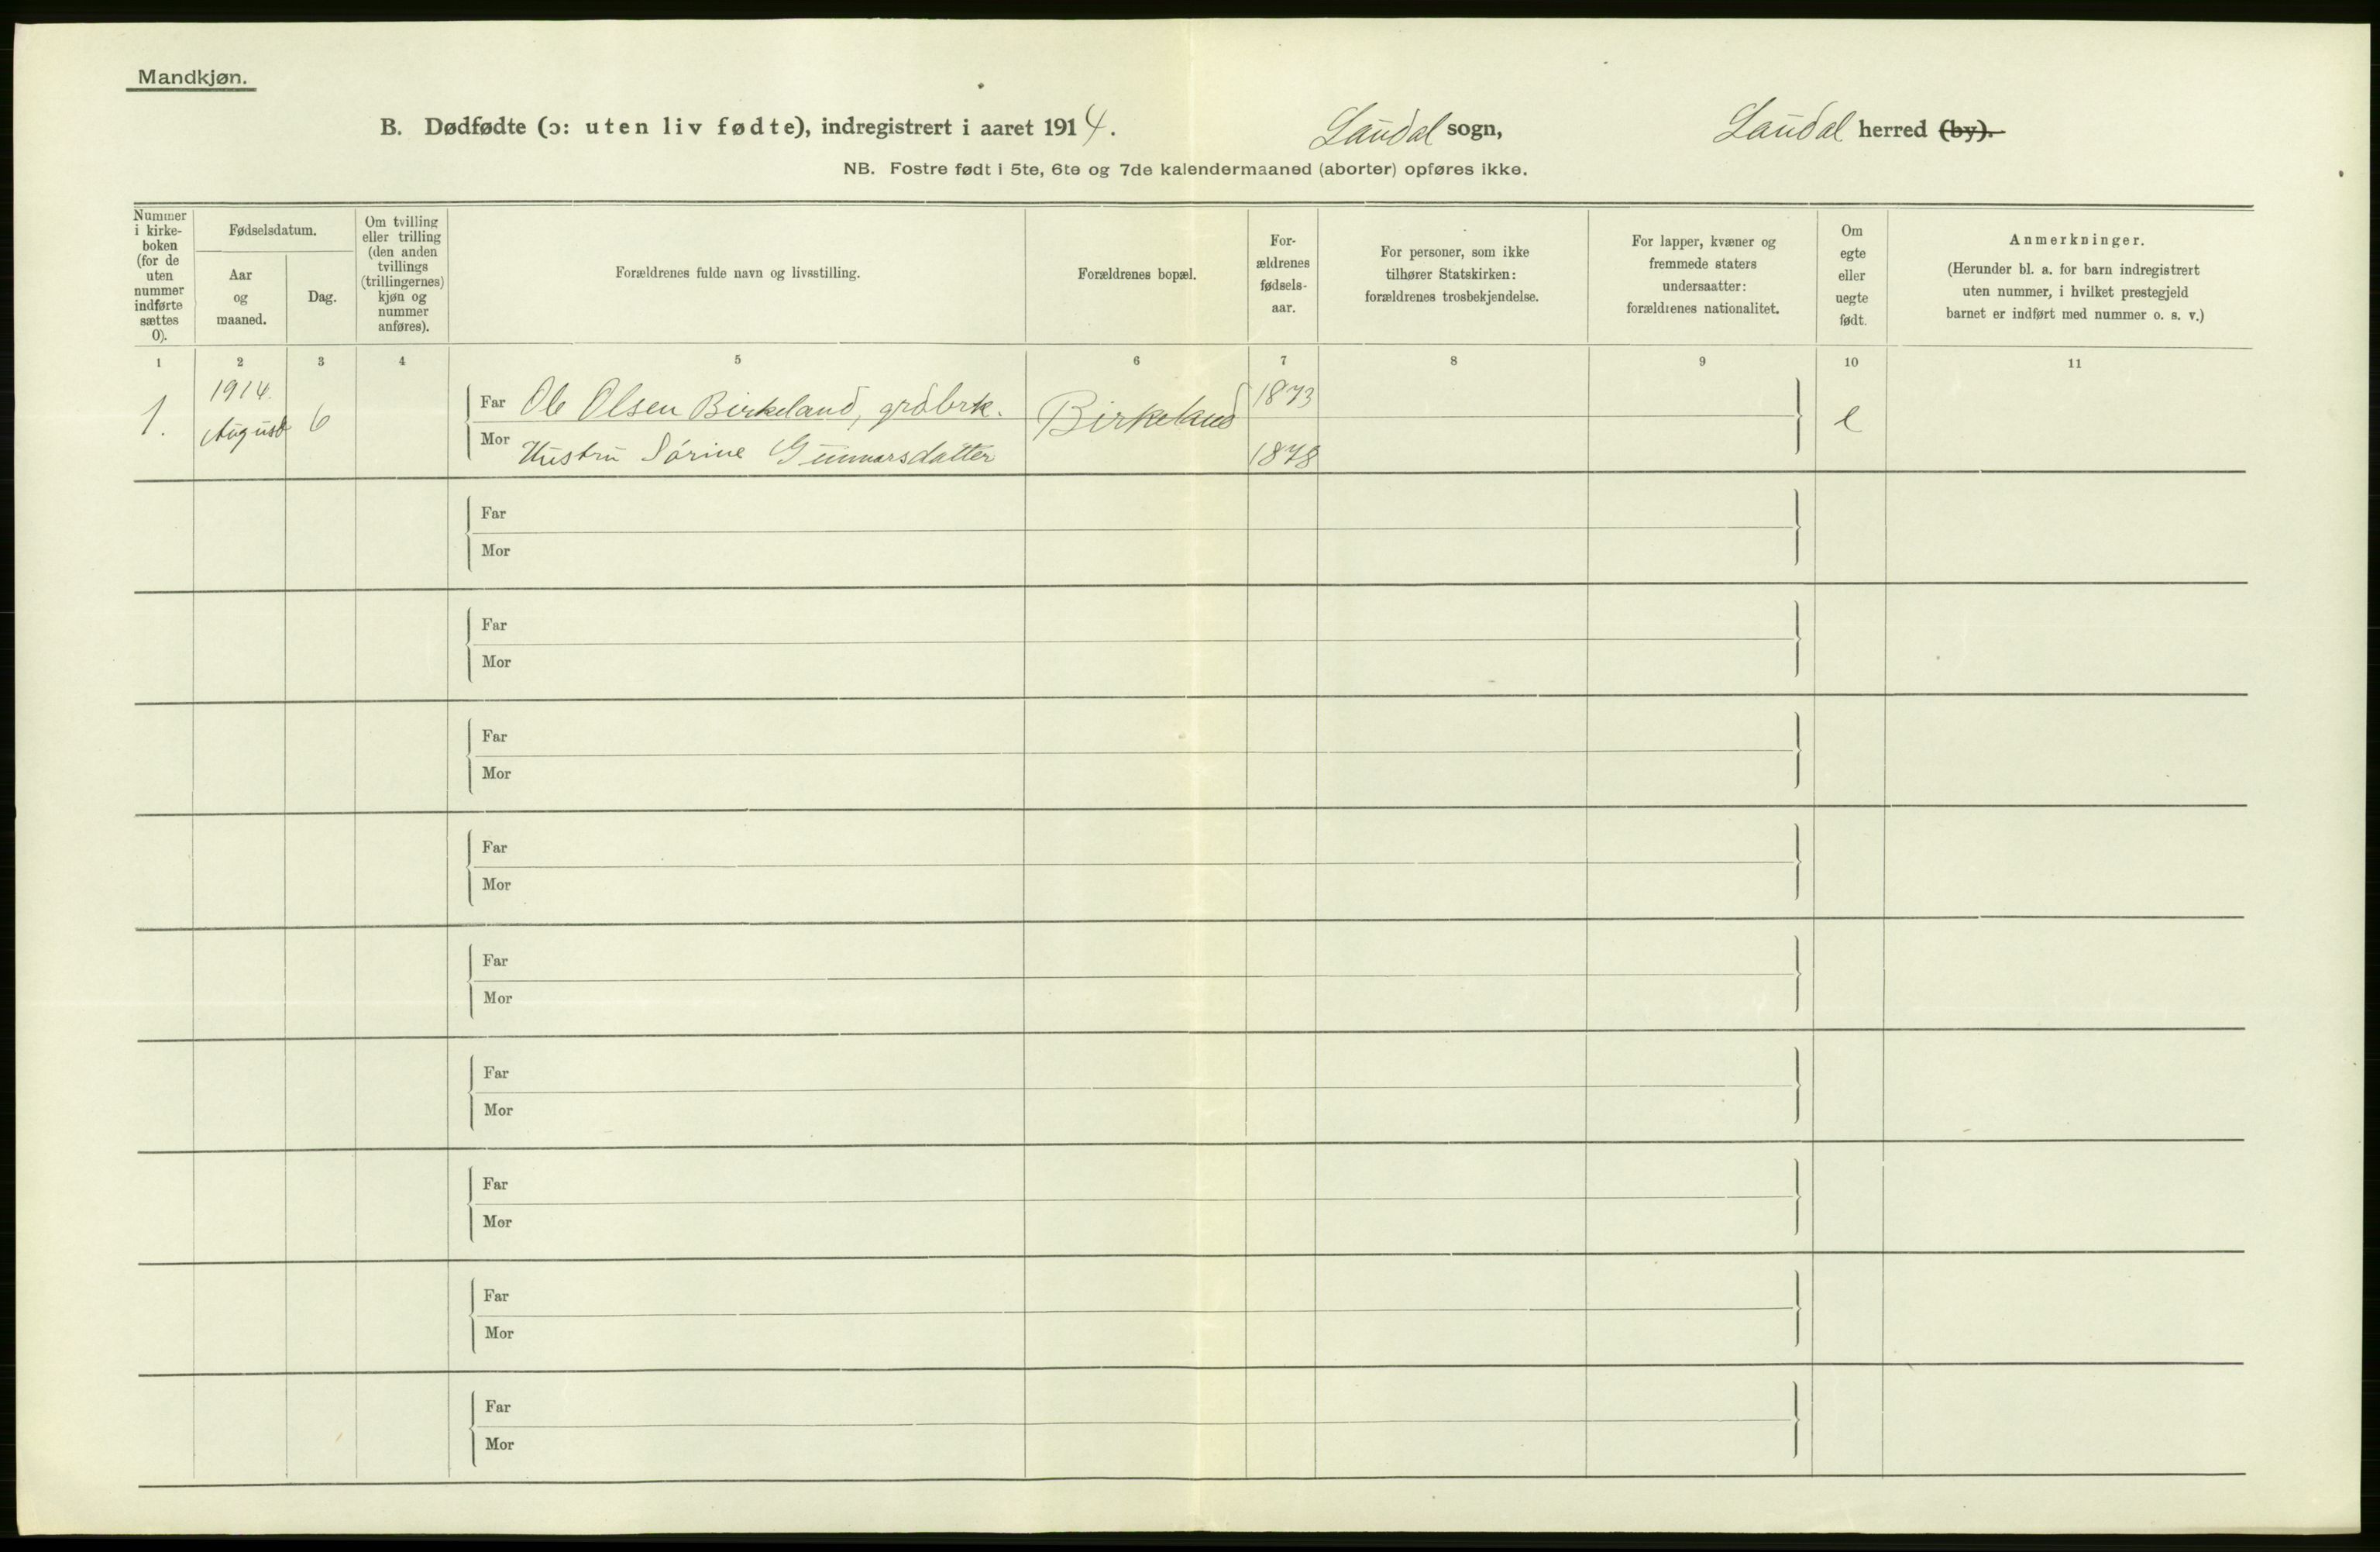 Mandkjøn.
B. Dødfødte (ɔ: uten liv fødte), indregistrert i aaret 1914. Laudal sogn, Laudal herred (by).
NB. Fostre født i 5te, 6te og 7de kalendermaaned (aborter) opføres ikke.
Nummer
i kirke-
boken
(for de
uten
nummer
indførte
sættes
0).
Fødselsdatum.
Aar
og
maaned.
Dag.
Om tvilling
eller trilling
(den anden
tvillings
(trillingernes)
kjøn og
nummer
anføres).
Forældrenes fulde navn og livsstilling.
Forældrenes bopæl.
For-
ældrenes
fødsels-
aar.
For personer, som ikke
tilhører Statskirken:
forældrenes trosbekjendelse.
For lapper, kvæner og
fremmede staters
undersaatter:
forældrenes nationalitet.
Om
egte
eller
uegte
født.
Anmerkninger.
(Herunder bl. a. for barn indregistrert
uten nummer, i hvilket prestegjeld
barnet er indført med nummer o. s. v.)
1 2 3 4 5 6 7 8 9 10 11
1914.
1. August 6 Far Ole Olsen Birkeland, grdbrk. Birkeland 1873 e
Mor Hustru Sørine Gunnarsdatter 1878
Far
Mor
Far
Mor
Far
Mor
Far
Mor
Far
Mor
Far
Mor
Far
Mor
Far
Mor
Far
Mor